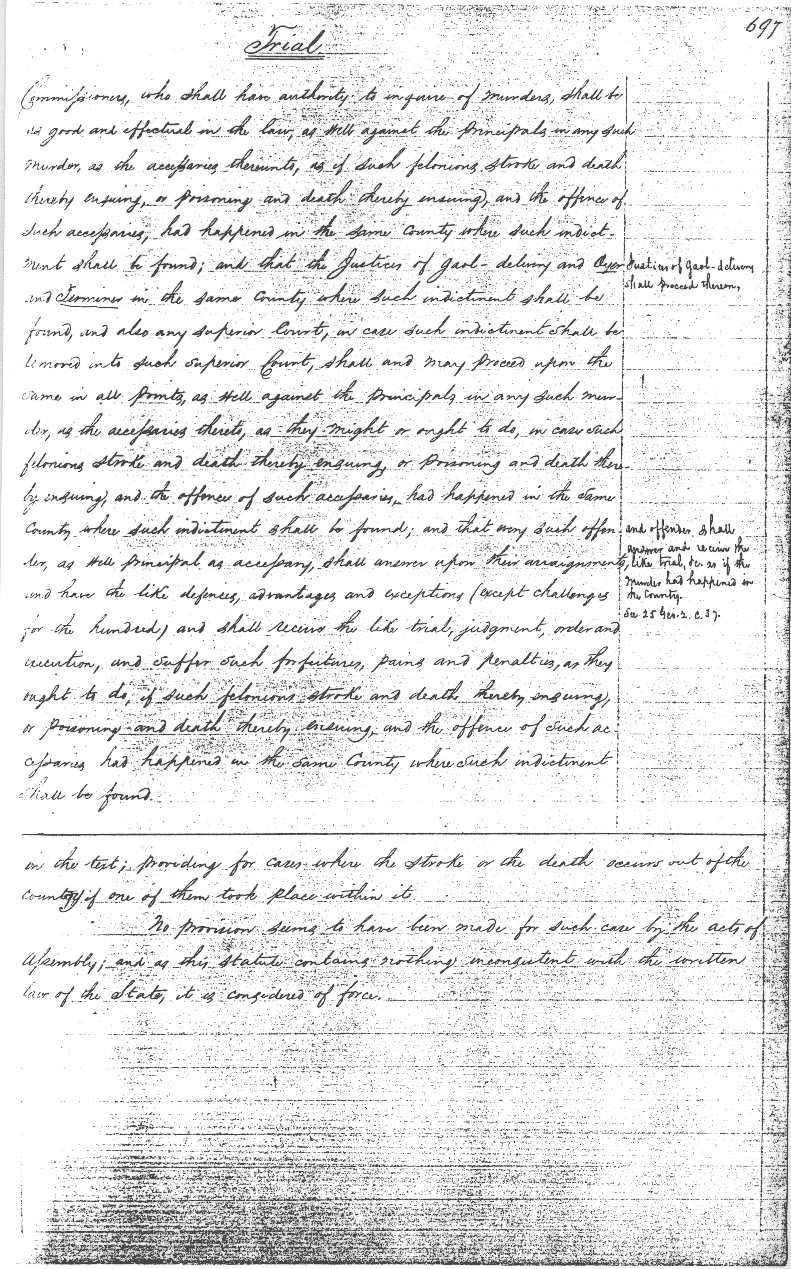 697
Trial
Commissioners, who shall have authority to inquire of murders, shall be
as good and effectual in the law, as well against the principals in any such
murder, as the accessaries thereunto, as if such felonious stroke and death
thereby ensuing, or poisoning and death thereby ensuing, and the offence of
such accessaries, had happened in the same County where such indict-
ment shall be found; and that the Justices of Gaol-delivery and Oyer
and Terminer in the same County where such indictment shall be
found, and also any superior Court, in case such indictment shall be
removed into such superior Court, shall and may proceed upon the
same in all points, as well against the principals in any such mur-
der, as the accessaries thereto, as they might or ought to do, in case such
felonious stroke and death thereby ensuing, or poisoning and death there-
by ensuing, and the offence of such accessaries, had happened in the same
County where such indictment shall be found; and that every such offen-
der, as well principal as accessary, shall answer upon their arraignments,
and have the like defences, advantages and exceptions (except challenges
for the hundred) and shall receive the like trial, judgment, order and
execution, and suffer such forfeitures, pains and penalties, as they
ought to do, if such felonious stroke and death thereby ensuing,
or poisoning and death thereby ensuing, and the offence of such ac-
cessaries had happened in the same County where such indictment
shall be found.
Justices of Gaol-delivery
shall proceed thereon,
and offender shall
answer and receive the
like trial, &c. as if the
murder had happened in
the County.
See 25 Geo. 2. c. 37.
in the text; providing for cases where the stroke or the death occurs out of the
country if one of them took place within it
No provision seems to have been made for such case by the acts of
Assembly; and as this statute contains nothing inconsistent with the written
law of the State, it is considered of force.